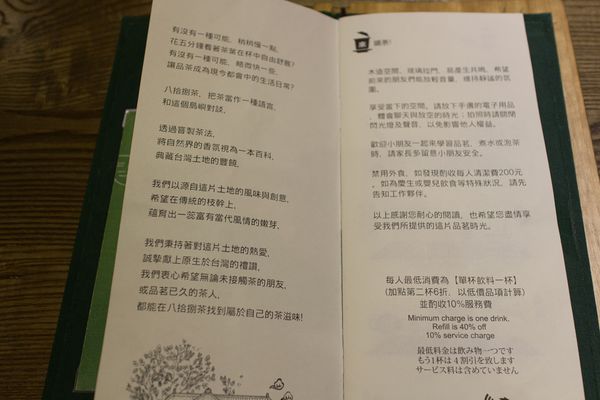 有沒有一種可能，稍稍慢一點，
花五分鐘看著茶葉在杯中自由舒展？
有沒有一種可能，略微快一些，
讓品茶成為現今都會中的生活日常？
八拾捌茶，把茶當作一種語言，
和這個島嶼對談。
透過窨製茶法，
將自然界的香氛視為一本百科，
典藏台灣土地的豐饒。
我們以源自這片土地的風味與創意，
希望在傳統的枝幹上，
蘊育出一蕊富有當代風情的嫩芽。
我們秉持著對這片土地的熱愛，
誠摯獻上原生於台灣的禮讚，
我們衷心希望無論未接觸茶的朋友，
或品茗已久的茶人，
都能在八拾捌茶找到屬於自己的茶滋味！
木造空間、玻璃拉門，易產生共鳴，希望
前來的朋友們能放輕音量，維持靜謐的氛
圍。
享受當下的空間，請放下手邊的電子用品
，體會聊天與放空的時光；拍照時請關閉
閃光燈及聲音，以免影響他人權益。
歡迎小朋友一起來學習品茗，煮水或泡茶
時，請家長多留意小朋友安全。
禁用外食，如發現酌收每人清潔費200元
，如為慶生或嬰兒飲食等特殊狀況，請先
告知工作夥伴。
以上感謝您耐心的閱讀，也希望您盡情享
受我們所提供的這片品茗時光。
每人最低消費為【單杯飲料一杯】
(加點第二杯6折，以低價品項計算)
並酌收10%服務費
Minimum charge is one drink.
Refill is 40% off
10% service charge
最低料金は飲み物一つです
もう1杯は４割引を致します
サービス料は含めていません